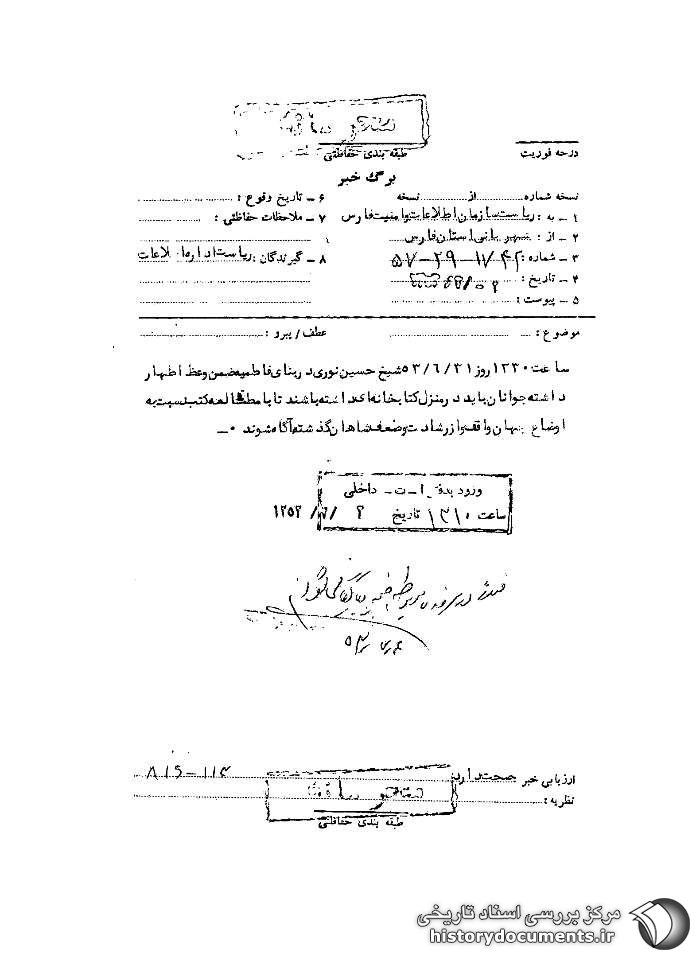 طبقه بندی حفاظتی
درجه فوریت
برگ خبر
نسخه شماره ........ از ........ نسخه
۱ ـ به : ریاست سازمان اطلاعات وامنیت فارس
۲ ـ از : شهربانی استان فارس
۳ ـ شماره :
۴ ـ تاریخ :
۵ ـ پیوست :
۶ ـ تاریخ وقوع :
۷ ـ ملاحظات حفاظتی :
۸ ـ گیرندگان : ریاست اداره اطلاعات
موضوع :
عطف / پیرو :
ساعت ۱۲۳۰ روز ۵۳/۶/۳۱ شیخ حسین نوری در بنای فاطمیه ضمن وعظ اظهار
داشته جوانان باید در منزل کتابخانه ای داشته باشند تا با مطالعه کتب نسبت به
اوضاع جهان واقف و از رشادت وضعف شاهان گذشته آگاه شوند ۰ـ
ورود بدفتر ا ـ ت ـ داخلی
ساعت ۱۳۱۰ تاریخ ۲ /۷/ ۱۳۵۳
ارزیابی خبر صحت دارد
۸۱۵-۱۱۳
نظریه :
طبقه بندی حفاظتی
مرکز بررسی اسناد تاریخی
historydocuments.ir